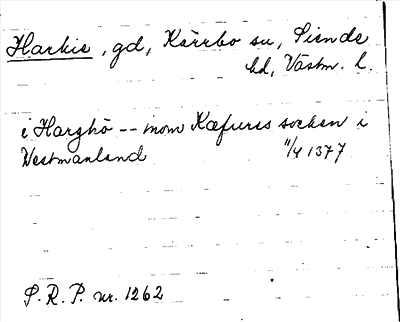 Harkie, gd, Kärrbo sn, Siende
hd, Västm. l.
i Harghö -- inom Kæfures socken i
Westmanland 11/4 1377
S. R. P. nr. 1262